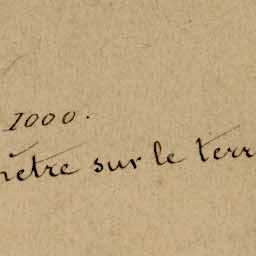 1000.
mètre sur le terr